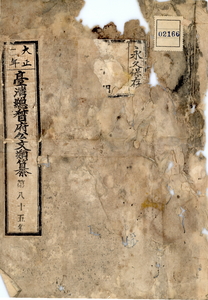 02166
永久保存
門
大正
一年
臺灣總督府公文類纂
第八十五卷